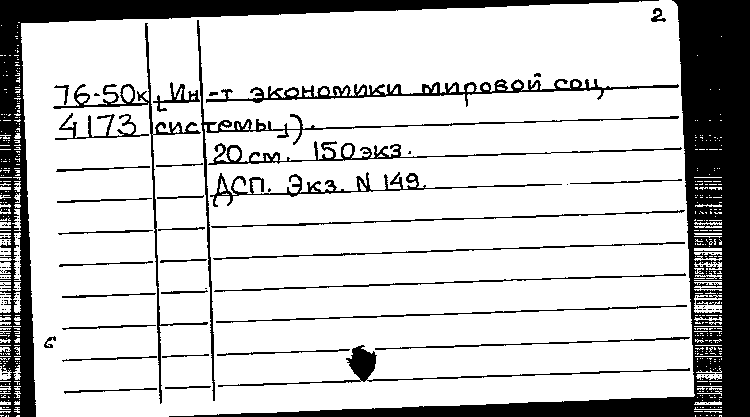 2
76-50к [Ин-т экономики мировой соц.
4173 системы]).
20 см. 150 экз.
ДСП. Экз. N 149.